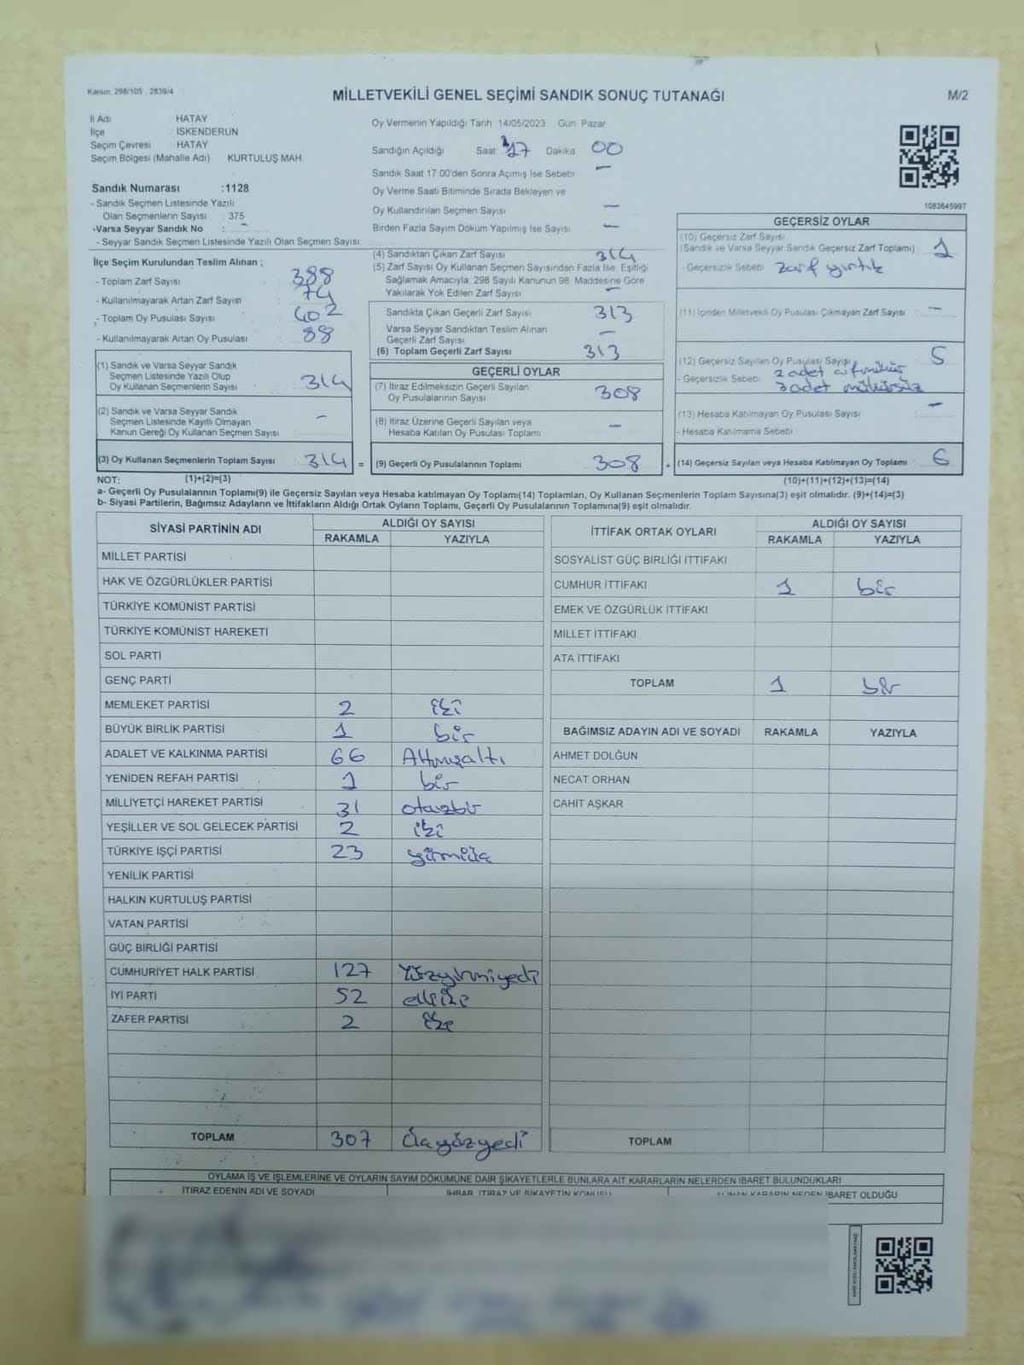 Kanun: 298/105 , 2839/4
MİLLETVEKİLİ GENEL SEÇİMİ SANDIK SONUÇ TUTANAĞI
M/2
İl Adı HATAY
İlçe İSKENDERUN
Seçim Çevresi HATAY
Seçim Bölgesi (Mahalle Adı) KURTULUŞ MAH.
Sandık Numarası :1128
- Sandık Seçmen Listesinde Yazılı
Olan Seçmenlerin Sayısı : 375
-Varsa Seyyar Sandık No : -
- Seyyar Sandık Seçmen Listesinde Yazılı Olan Seçmen Sayısı:
İlçe Seçim Kurulundan Teslim Alınan ;
- Toplam Zarf Sayısı 388
- Kullanılmayarak Artan Zarf Sayısı 74
- Toplam Oy Pusulası Sayısı 402
- Kullanılmayarak Artan Oy Pusulası 88
(1) Sandık ve Varsa Seyyar Sandık
Seçmen Listesinde Yazılı Olup
Oy Kullanan Seçmenlerin Sayısı 314
(2) Sandık ve Varsa Seyyar Sandık
Seçmen Listesinde Kayıtlı Olmayan
Kanun Gereği Oy Kullanan Seçmen Sayısı -
(3) Oy Kullanan Seçmenlerin Toplam Sayısı 314 =
Oy Vermenin Yapıldığı Tarih 14/05/2023 Gün Pazar
Sandığın Açıldığı Saat 17 Dakika 00
Sandık Saat 17.00'den Sonra Açılmış İse Sebebi -
Oy Verme Saati Bitiminde Sırada Bekleyen ve
Oy Kullandırılan Seçmen Sayısı -
Birden Fazla Sayım Döküm Yapılmış İse Sayısı -
(4) Sandıktan Çıkan Zarf Sayısı 314
(5) Zarf Sayısı Oy Kullanan Seçmen Sayısından Fazla İse, Eşitliği
Sağlamak Amacıyla, 298 Sayılı Kanunun 98. Maddesine Göre
Yakılarak Yok Edilen Zarf Sayısı -
Sandıkta Çıkan Geçerli Zarf Sayısı 313
Varsa Seyyar Sandıktan Teslim Alınan
Geçerli Zarf Sayısı -
(6) Toplam Geçerli Zarf Sayısı 313
GEÇERLİ OYLAR
(7) İtiraz Edilmeksizin Geçerli Sayılan
Oy Pusulalarının Sayısı 308
(8) İtiraz Üzerine Geçerli Sayılan veya
Hesaba Katılan Oy Pusulası Toplamı -
(9) Geçerli Oy Pusulalarının Toplamı 308 +
1083645997
GEÇERSİZ OYLAR
(10) Geçersiz Zarf Sayısı
(Sandık ve Varsa Seyyar Sandık Geçersiz Zarf Toplamı) 1
- Geçersizlik Sebebi zarf yırtık
(11) İçinden Milletvekili Oy Pusulası Çıkmayan Zarf Sayısı -
(12) Geçersiz Sayılan Oy Pusulası Sayısı 5
- Geçersizlik Sebebi 2 adet
3 adet mühürsüz
(13) Hesaba Katılmayan Oy Pusulası Sayısı -
- Hesaba Katılmama Sebebi
(14) Geçersiz Sayılan veya Hesaba Katılmayan Oy Toplamı 6
NOT: (1)+(2)=(3) (10)+(11)+(12)+(13)=(14)
a- Geçerli Oy Pusulalarının Toplamı(9) ile Geçersiz Sayılan veya Hesaba katılmayan Oy Toplamı(14) Toplamları, Oy Kullanan Seçmenlerin Toplam Sayısına(3) eşit olmalıdır. (9)+(14)=(3)
b- Siyasi Partilerin, Bağımsız Adayların ve İttifakların Aldığı Ortak Oyların Toplamı, Geçerli Oy Pusulalarının Toplamına(9) eşit olmalıdır.
SİYASİ PARTİNİN ADI ALDIĞI OY SAYISI
RAKAMLA YAZIYLA
MİLLET PARTİSİ
HAK VE ÖZGÜRLÜKLER PARTİSİ
TÜRKİYE KOMÜNİST PARTİSİ
TÜRKİYE KOMÜNİST HAREKETİ
SOL PARTİ
GENÇ PARTİ
MEMLEKET PARTİSİ 2 iki
BÜYÜK BİRLİK PARTİSİ 1 bir
ADALET VE KALKINMA PARTİSİ 66 Altmışaltı
YENİDEN REFAH PARTİSİ 1 bir
MİLLİYETÇİ HAREKET PARTİSİ 31 otuzbir
YEŞİLLER VE SOL GELECEK PARTİSİ 2 iki
TÜRKİYE İŞÇİ PARTİSİ 23 yirmiüç
YENİLİK PARTİSİ
HALKIN KURTULUŞ PARTİSİ
VATAN PARTİSİ
GÜÇ BİRLİĞİ PARTİSİ
CUMHURİYET HALK PARTİSİ 127 Yüzyirmiyedi
İYİ PARTİ 52 elliiki
ZAFER PARTİSİ 2 iki
TOPLAM 307 Üçyüzyedi
İTTİFAK ORTAK OYLARI ALDIĞI OY SAYISI
RAKAMLA YAZIYLA
SOSYALİST GÜÇ BİRLİĞİ İTTİFAKI
CUMHUR İTTİFAKI 1 bir
EMEK VE ÖZGÜRLÜK İTTİFAKI
MİLLET İTTİFAKI
ATA İTTİFAKI
TOPLAM 1 bir
BAĞIMSIZ ADAYIN ADI VE SOYADI RAKAMLA YAZIYLA
AHMET DOLĞUN
NECAT ORHAN
CAHİT AŞKAR
TOPLAM
OYLAMA İŞ VE İŞLEMLERİNE VE OYLARIN SAYIM DÖKÜMÜNE DAİR ŞİKAYETLERLE BUNLARA AİT KARARLARIN NELERDEN İBARET BULUNDUKLARI
İTİRAZ EDENİN ADI VE SOYADI İHBAR, İTİRAZ VE ŞİKAYETİN KONUSU ALINAN KARARIN NEDEN İBARET OLDUĞU